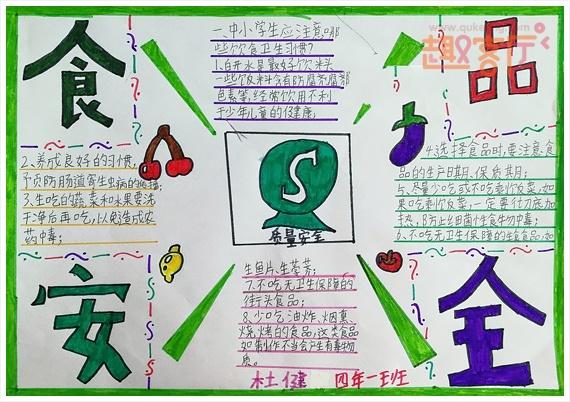 食
品
安
全
www.quke
趣客厅
一、中小学生应注意哪
些饮食卫生习惯?
1、白开水是最好饮料
一些饮料含有防腐剂
色素等,经常饮用不利
于少年儿童的健康;
2、养成良好的习惯,
予贡防肠道寄生虫病的传播;
3、生吃的蔬菜和水果要洗
干净后再吃,以免造成农
药中毒;
4、选择食品时,要注意食
品的生产日期、保质其月;
5、尽量少吃或不吃剩饭菜,如
果吃剩饭菜,一定要彻底加
热,防止细菌性食物中毒;
6、不吃无卫生保障的生食食品,如
生鱼片、生荸荠;
7、不吃无卫生保障的
街头食品;
8、少吃油炸、烟熏、
烧烤的食品,这类食品
如制作不当会产生有毒物
质。
S
质量安全
杜健 四年一班